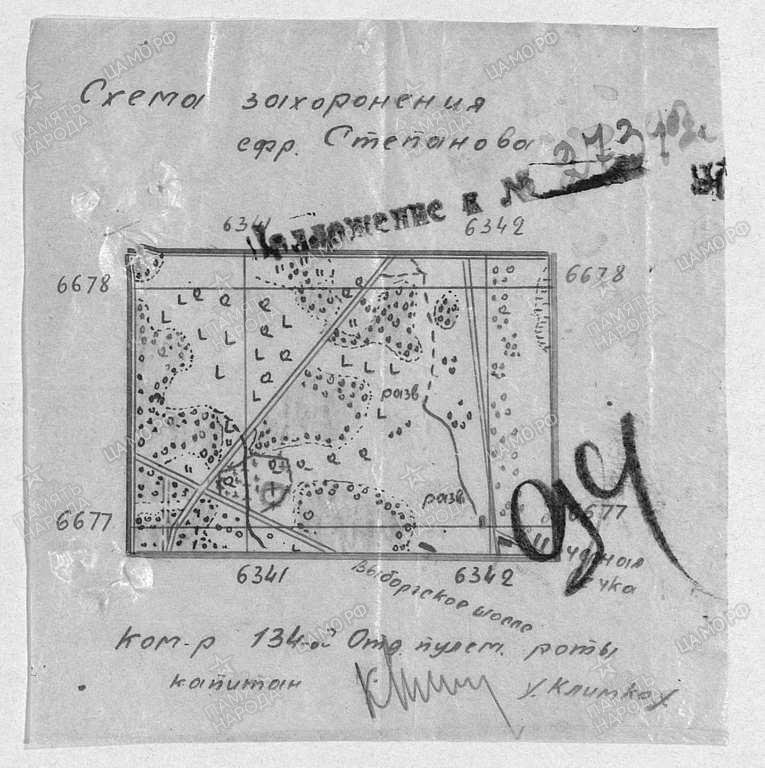 Схема захоронения
ефр. Степанова
Приложение к № 273
6341 6342
6678 6678
разв
разв
6677 6677
Черная
речка
6341 6342
Выборгское шоссе
94
Ком-р 134-ой Отд пулем. роты
капитан /Климко/
ПАМЯТЬ НАРОДА
ЦАМО.РФ